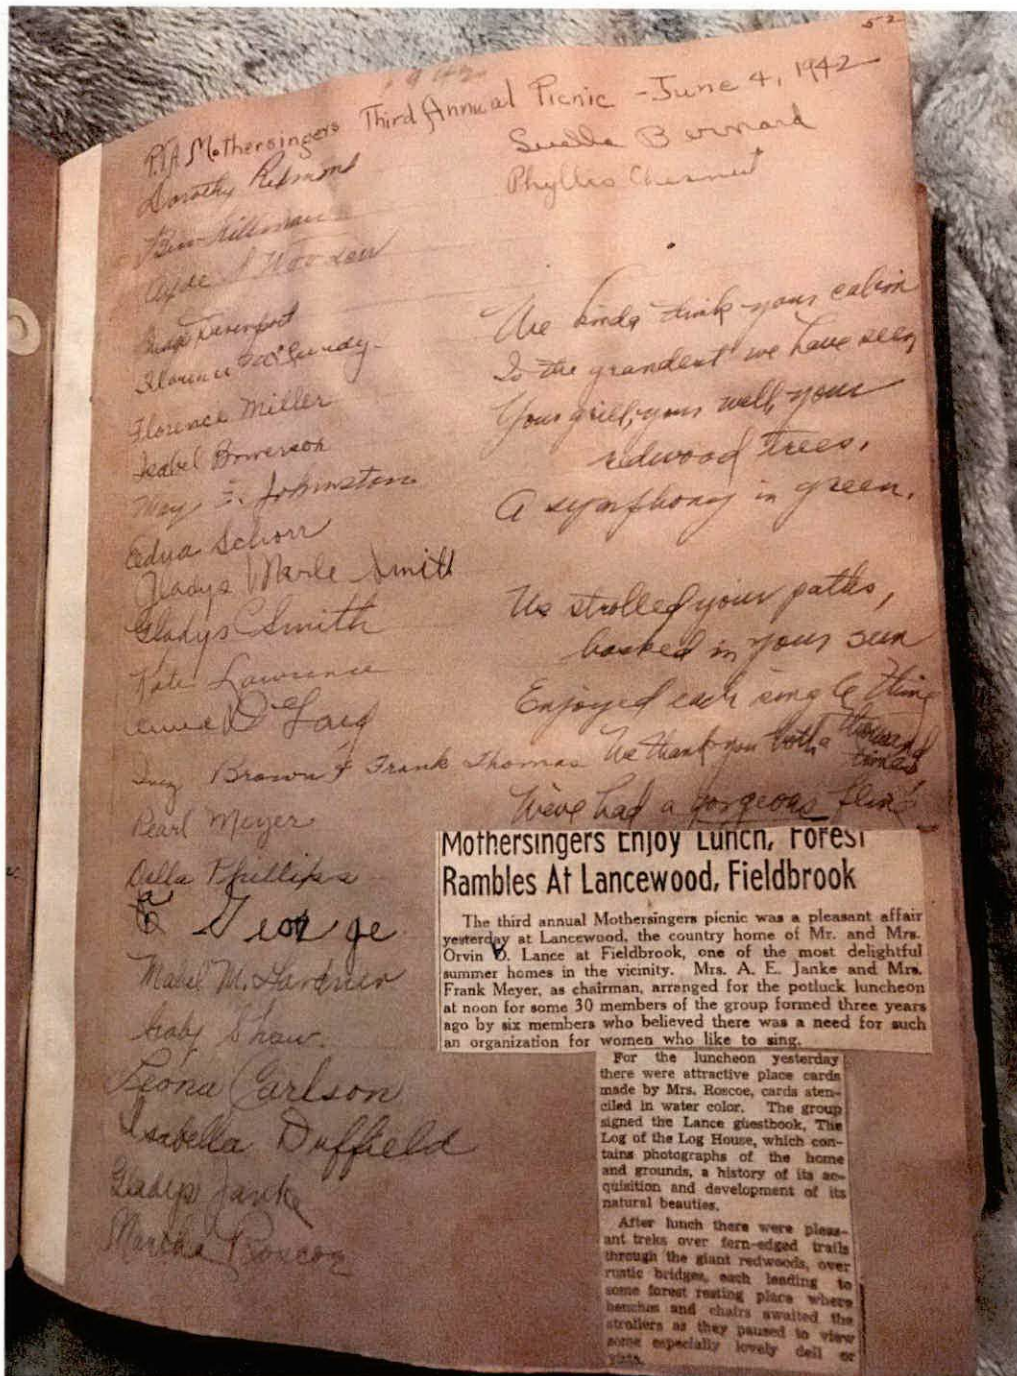 52
1942
P.T.A Mothersingers Third Annual Picnic - June 4, 1942
Dorothy Redmond
Clyde S Wooden
Davenport
Florence McCurdy
Florence Miller
Isabel Bowerson
May E. Johnston
Edya Schorr
Gladys Marle Smith
Gladys C Smith
Kate Lawrence
Brown & Frank Thomas
Pearl Meyer
Della Phillips
George
Mabel M. Gardner
Shaw.
Leona Carlson
Isabella Duffield
Gladys Janke
Martha Roscoe
Luella Bernard
Phyllis Chesnut
We kinda think your cabin
Is the grandest we have seen
Your grill, your well, your
redwood trees,
A symphony in green.
We strolled your paths,
basked in your sun
Enjoyed each single thing
We thank you both a thousand
times
We've had a gorgeous fling!
Mothersingers Enjoy Lunch, Forest
Rambles At Lancewood, Fieldbrook
The third annual Mothersingers picnic was a pleasant affair
yesterday at Lancewood, the country home of Mr. and Mrs.
Orvin O. Lance at Fieldbrook, one of the most delightful
summer homes in the vicinity. Mrs. A. E. Janke and Mrs.
Frank Meyer, as chairman, arranged for the potluck luncheon
at noon for some 30 members of the group formed three years
ago by six members who believed there was a need for such
an organization for women who like to sing.
For the luncheon yesterday
there were attractive place cards
made by Mrs. Roscoe, cards sten-
ciled in water color. The group
signed the Lance guestbook, The
Log of the Log House, which con-
tains photographs of the home
and grounds, a history of its ac-
quisition and development of its
natural beauties.
After lunch there were pleas-
ant treks over fern-edged trails
through the giant redwoods, over
rustic bridges, each leading to
some forest resting place where
benches and chairs awaited the
strollers as they paused to view
some especially lovely dell or